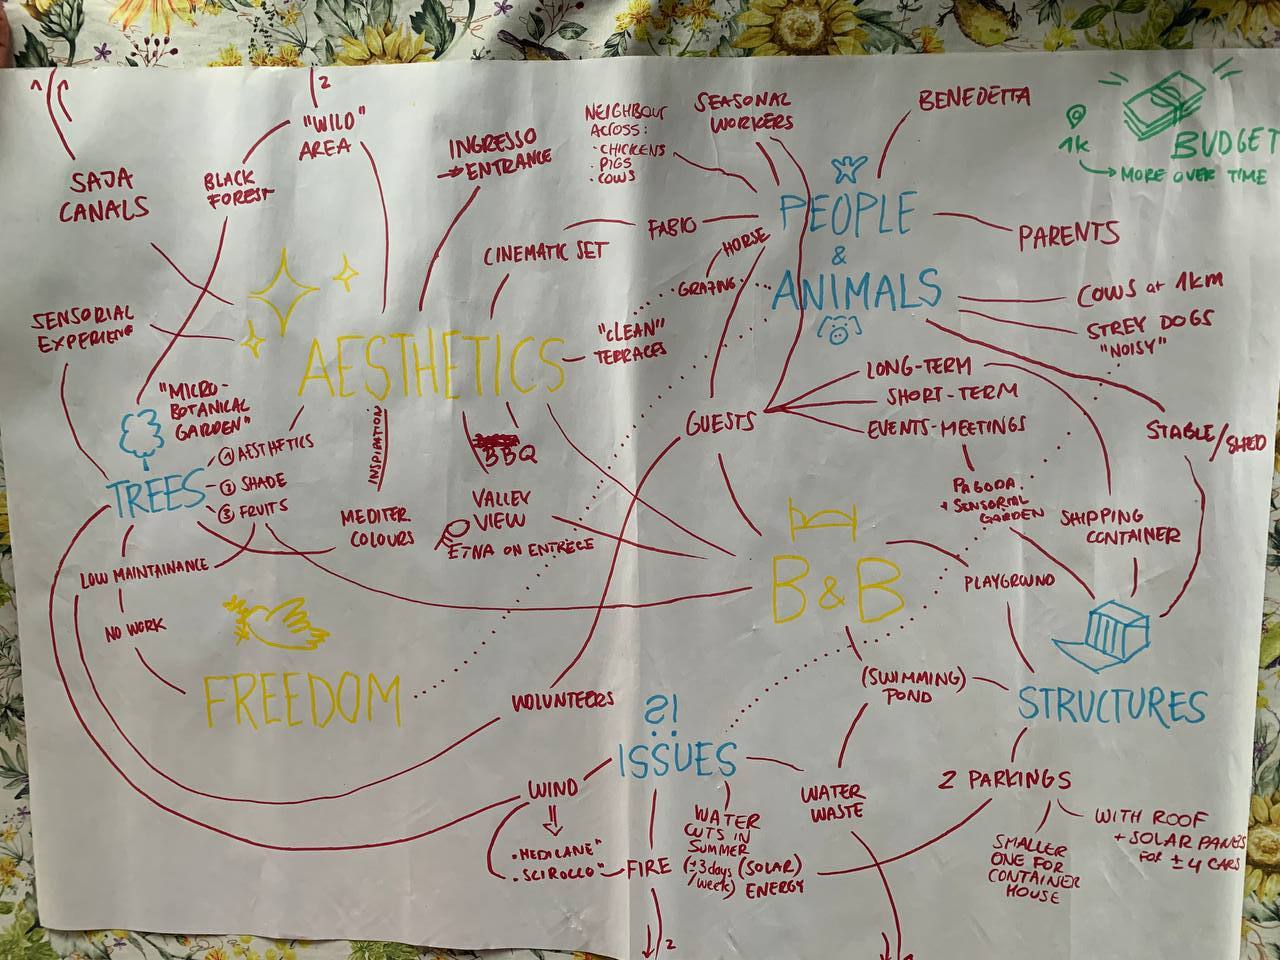 1
2
"WILD"
AREA
SAJA
CANALS
BLACK
FOREST
INGRESSO
→ENTRANCE
NEIGHBOUR
ACROSS:
· CHICKENS
· PIGS
· COWS
SEASONAL
WORKERS
BENEDETTA
1K
BUDGET
MORE OVER TIME
PEOPLE
&
ANIMALS
PARENTS
FABIO
HORSE
GRAZING
CINEMATIC SET
"CLEAN"
TERRACES
SENSORIAL
EXPERIENCE
AESTHETICS
COWS at 1km
STREY DOGS
"NOISY"
LONG-TERM
SHORT-TERM
EVENTS-MEETINGS
GUESTS
STABLE/SHED
"MICRO-
BOTANICAL
GARDEN"
TREES
① AESTHETICS
② SHADE
③ FRUITS
INSPIRATION
MEDITER.
COLOURS
BBQ
VALLEY
VIEW
ETNA ON ENTRECE
PAGODA
+ SENSORIAL
GARDEN
SHIPPING
CONTAINER
B&B
PLAYGROUND
LOW MAINTAINANCE
NO WORK
FREEDOM
VOLUNTEERS
(SWIMMING)
POND
STRUCTURES
?!
ISSUES
WIND
· MEDICANE"
· SCIROCCO"
FIRE
2
WATER
CUTS IN
SUMMER
(±3days
/week)
(SOLAR)
ENERGY
WATER
WASTE
2 PARKINGS
SMALLER
ONE FOR
CONTAINER
HOUSE
WITH ROOF
+ SOLAR PANELS
FOR ±4 CARS